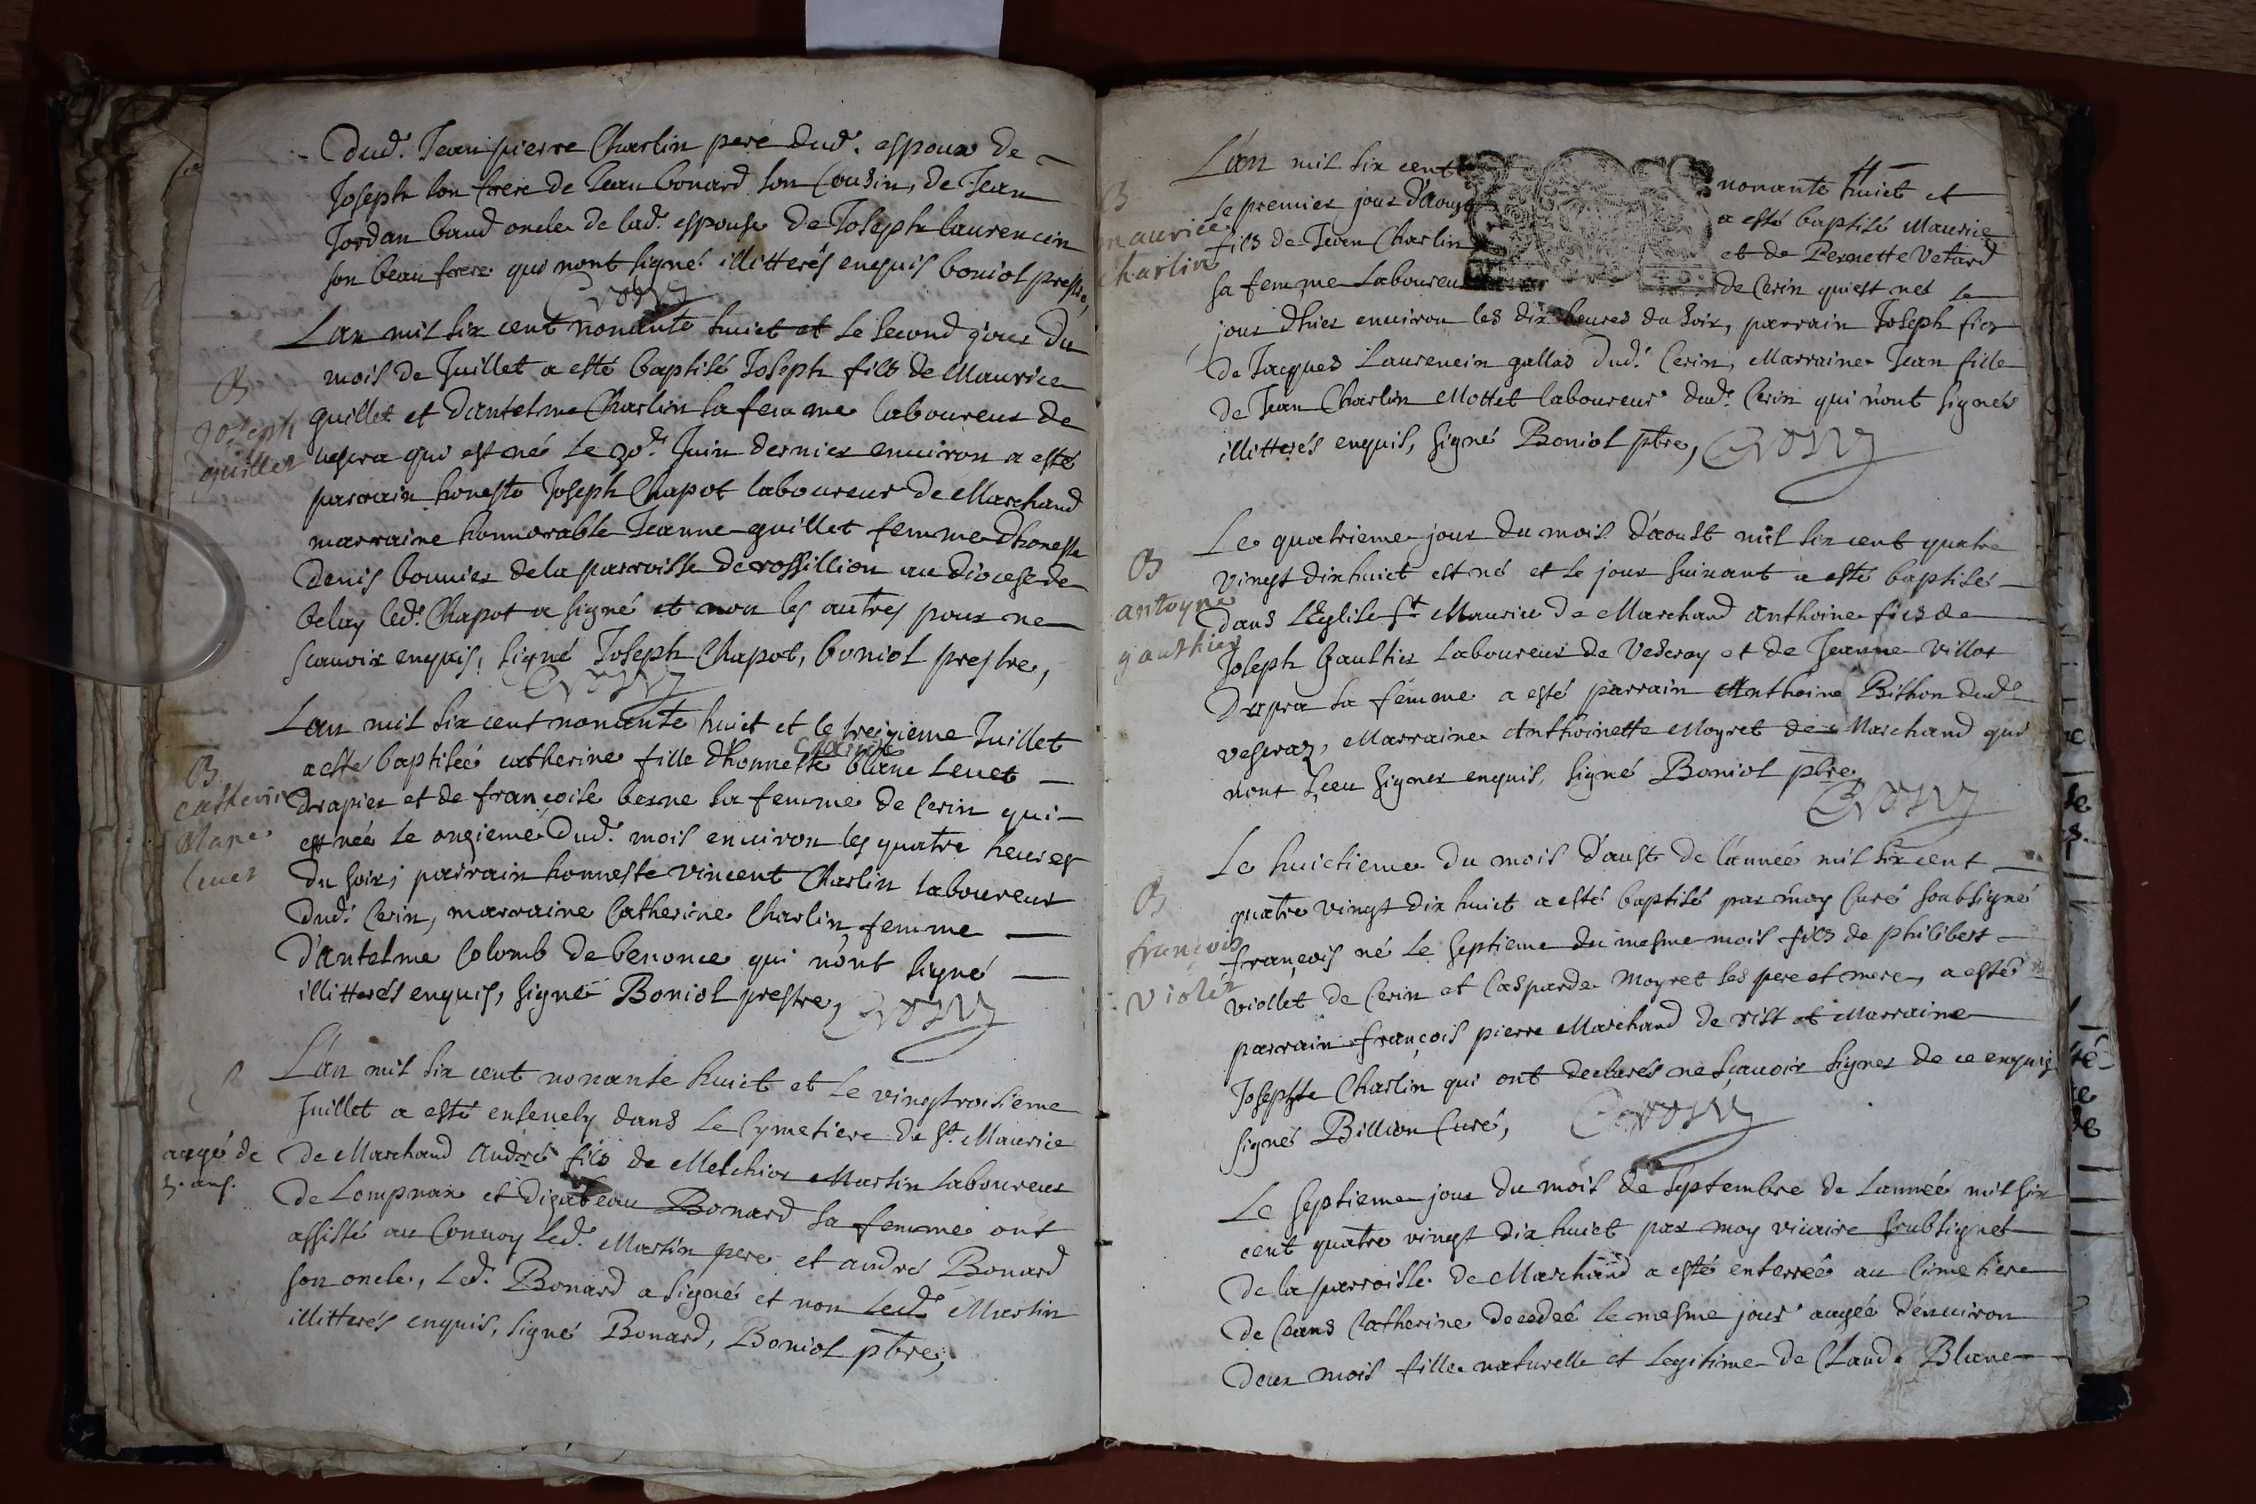 dud. Jean pierre Charlin pere dud. espoux de
Joseph son frere de Jean bonard son Cousin, de Jean
Jordan baud oncle de lad. espouse de Joseph laurencin
son beau frere qui nont signé illitterés enquis boniol prestre,
Lan mil six cent nonante huict et le second jour du
mois de Juillet a esté baptisé Joseph fils de Maurice
guillet et dantelme Charlin sa femme laboureur de
vescra qui est né le 30e Juin dernier environ a esté
parrain honeste Joseph Chapot laboureur de Marchand
marraine honnorable Jeanne guillet femme dhoneste
denis bonnier de la parroisse de rossillion au diocese de
belay led. Chapot a signé et non les autres pour ne
scavoir enquis, signé Joseph Chapot, boniol prestre,
B
Joseph
guillet
Lan mil six cent nonante huict et le treizieme Juillet
a esté baptiseé catherine fille dhonneste Claude blanc Levet
drapier et de françoise berne sa femme de Cerin qui
est neé le onzieme dud. mois environ les quatre heures
du soir, parrain honneste vincent Charlin laboureur
dud. Cerin, marraine Catherine Charlin femme
d'antelme Colomb de benonce qui n'ont signé
illitterés enquis, signé Boniol prestre,
B
catherine
blanc
levet
L'an mil six cent nonante huict et le vingtroisieme
Juillet a esté ensevely dans le Cymetiere de St. Maurice
de Marchand André fils de Melchior Martin laboureur
de Lompnas et Bonard sa femme ont
assisté au Convoy led. Martin pere et andré Bonard
son oncle, led. Bonard a signé et non led. Martin
illitterés enquis, signé Bonard, Boniol ptre,
aagé de
ans.
L'an mil six cent nonante huict et
le premier jour d'aoust a esté baptisé Maurice
fils de Jean Charlin et de Pernette Vetard
sa femme Laboureur de Cerin qui est né le
jour dhier environ les dix heures du soir, parrain Joseph fils
de Jacques Laurencin gallas dud. Cerin, Marraine Jean fille
de Jean Charlin Mottet laboureur dud. Cerin qui n'ont signés
illitterés enquis, signé Boniol ptre,
B
maurice
charlin
Le quatrieme jour du mois d'aoust mil six cent quatre
vingt dix huict est né et le jour suivant a esté baptisé
dans L'Eglise St Maurice de Marchand Anthoine fils de
Joseph Gaultier Laboureur de Vescray et de Jeanne Villot
Drapra sa femme a esté parrain Anthoine Bithon dud.
vescraz, Marraine Anthoinette Moyret de Marchand qui
nont sceu signer enquis, signé Boniol ptre,
B
antoyne
gauthier
Le huictieme du mois d'aust de l'anneé mil six cent
quatre vingt dix huict a esté baptisé par moy Curé soubsigné
françois né le septieme du mesme mois fils de philibert
viollet de Cerin et Casparde Moyret ses pere et mere, a esté
parrain françois pierre Marchand de rist et Marraine
Josephte Charlin qui ont declarés ne sçavoir signer de ce enquis
signé Billion Curé,
B
françois
violet
Le septieme jour du mois de septembre de Lanneé mil six
cent quatre vingt dix huict par moy vicaire soubsignet
de la parroisse de Marchand a esté enterreé au Cimetiere
de Ceans Catherine decedeé le mesme jour aageé d'environ
deux mois fille naturelle et Legitime de Claude Blanc